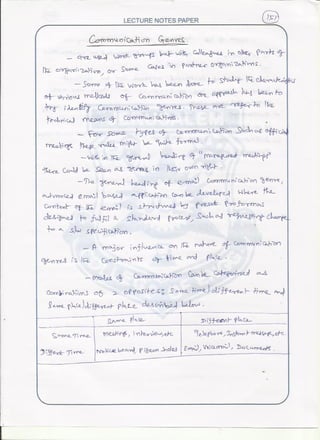 LECTURE NOTES PAPER
157
Communication Genres
- are used work groups but with colleagues in other parts of
the organization, or some cases in partner organizations.
- Some of the work has been done to study the characteristics
of various methods of communication. One approach has been to
try identify communication "genres. These are refer to the
technical means of communication.
- For some types of communication such as official
meetings these rules might be quite formal.
- within the general heading of "managerial meetings"
there could be seen as genres in their own right.
- The general heading of email communication genre
advanced email based application can be developed where the
content of the email is structured by preset proformas
designed to fulfil a standard process, such as requesting change
to a specification.
- A major influence on the nature of communication
genres is the constraints of time and place.
- modes of communication can be categorized as
combinations of 2 opposites: Same time/different time and
Same place/different place described below.
Same Place
Different Place
Same Time
Meetings, Interviews, etc
Telephone, Instant message, etc.
Different Time
Notice board, Pigeon holes
Email, Voicemail, Documents.